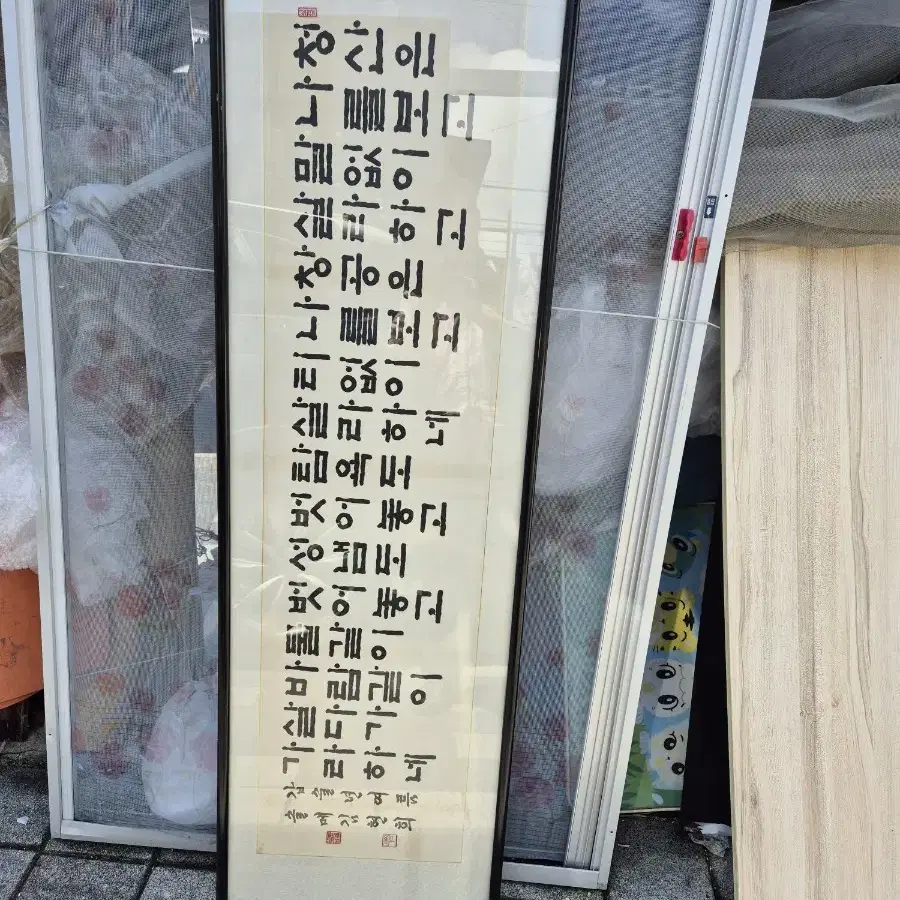 청산은
나를보고
말없이
살라하고
창공은
나를보고
티없이
살라하네
탐욕도
벗어놓고
성냄도
벗어놓고
물같이
바람같이
살다가
가라하네
갑술년여름